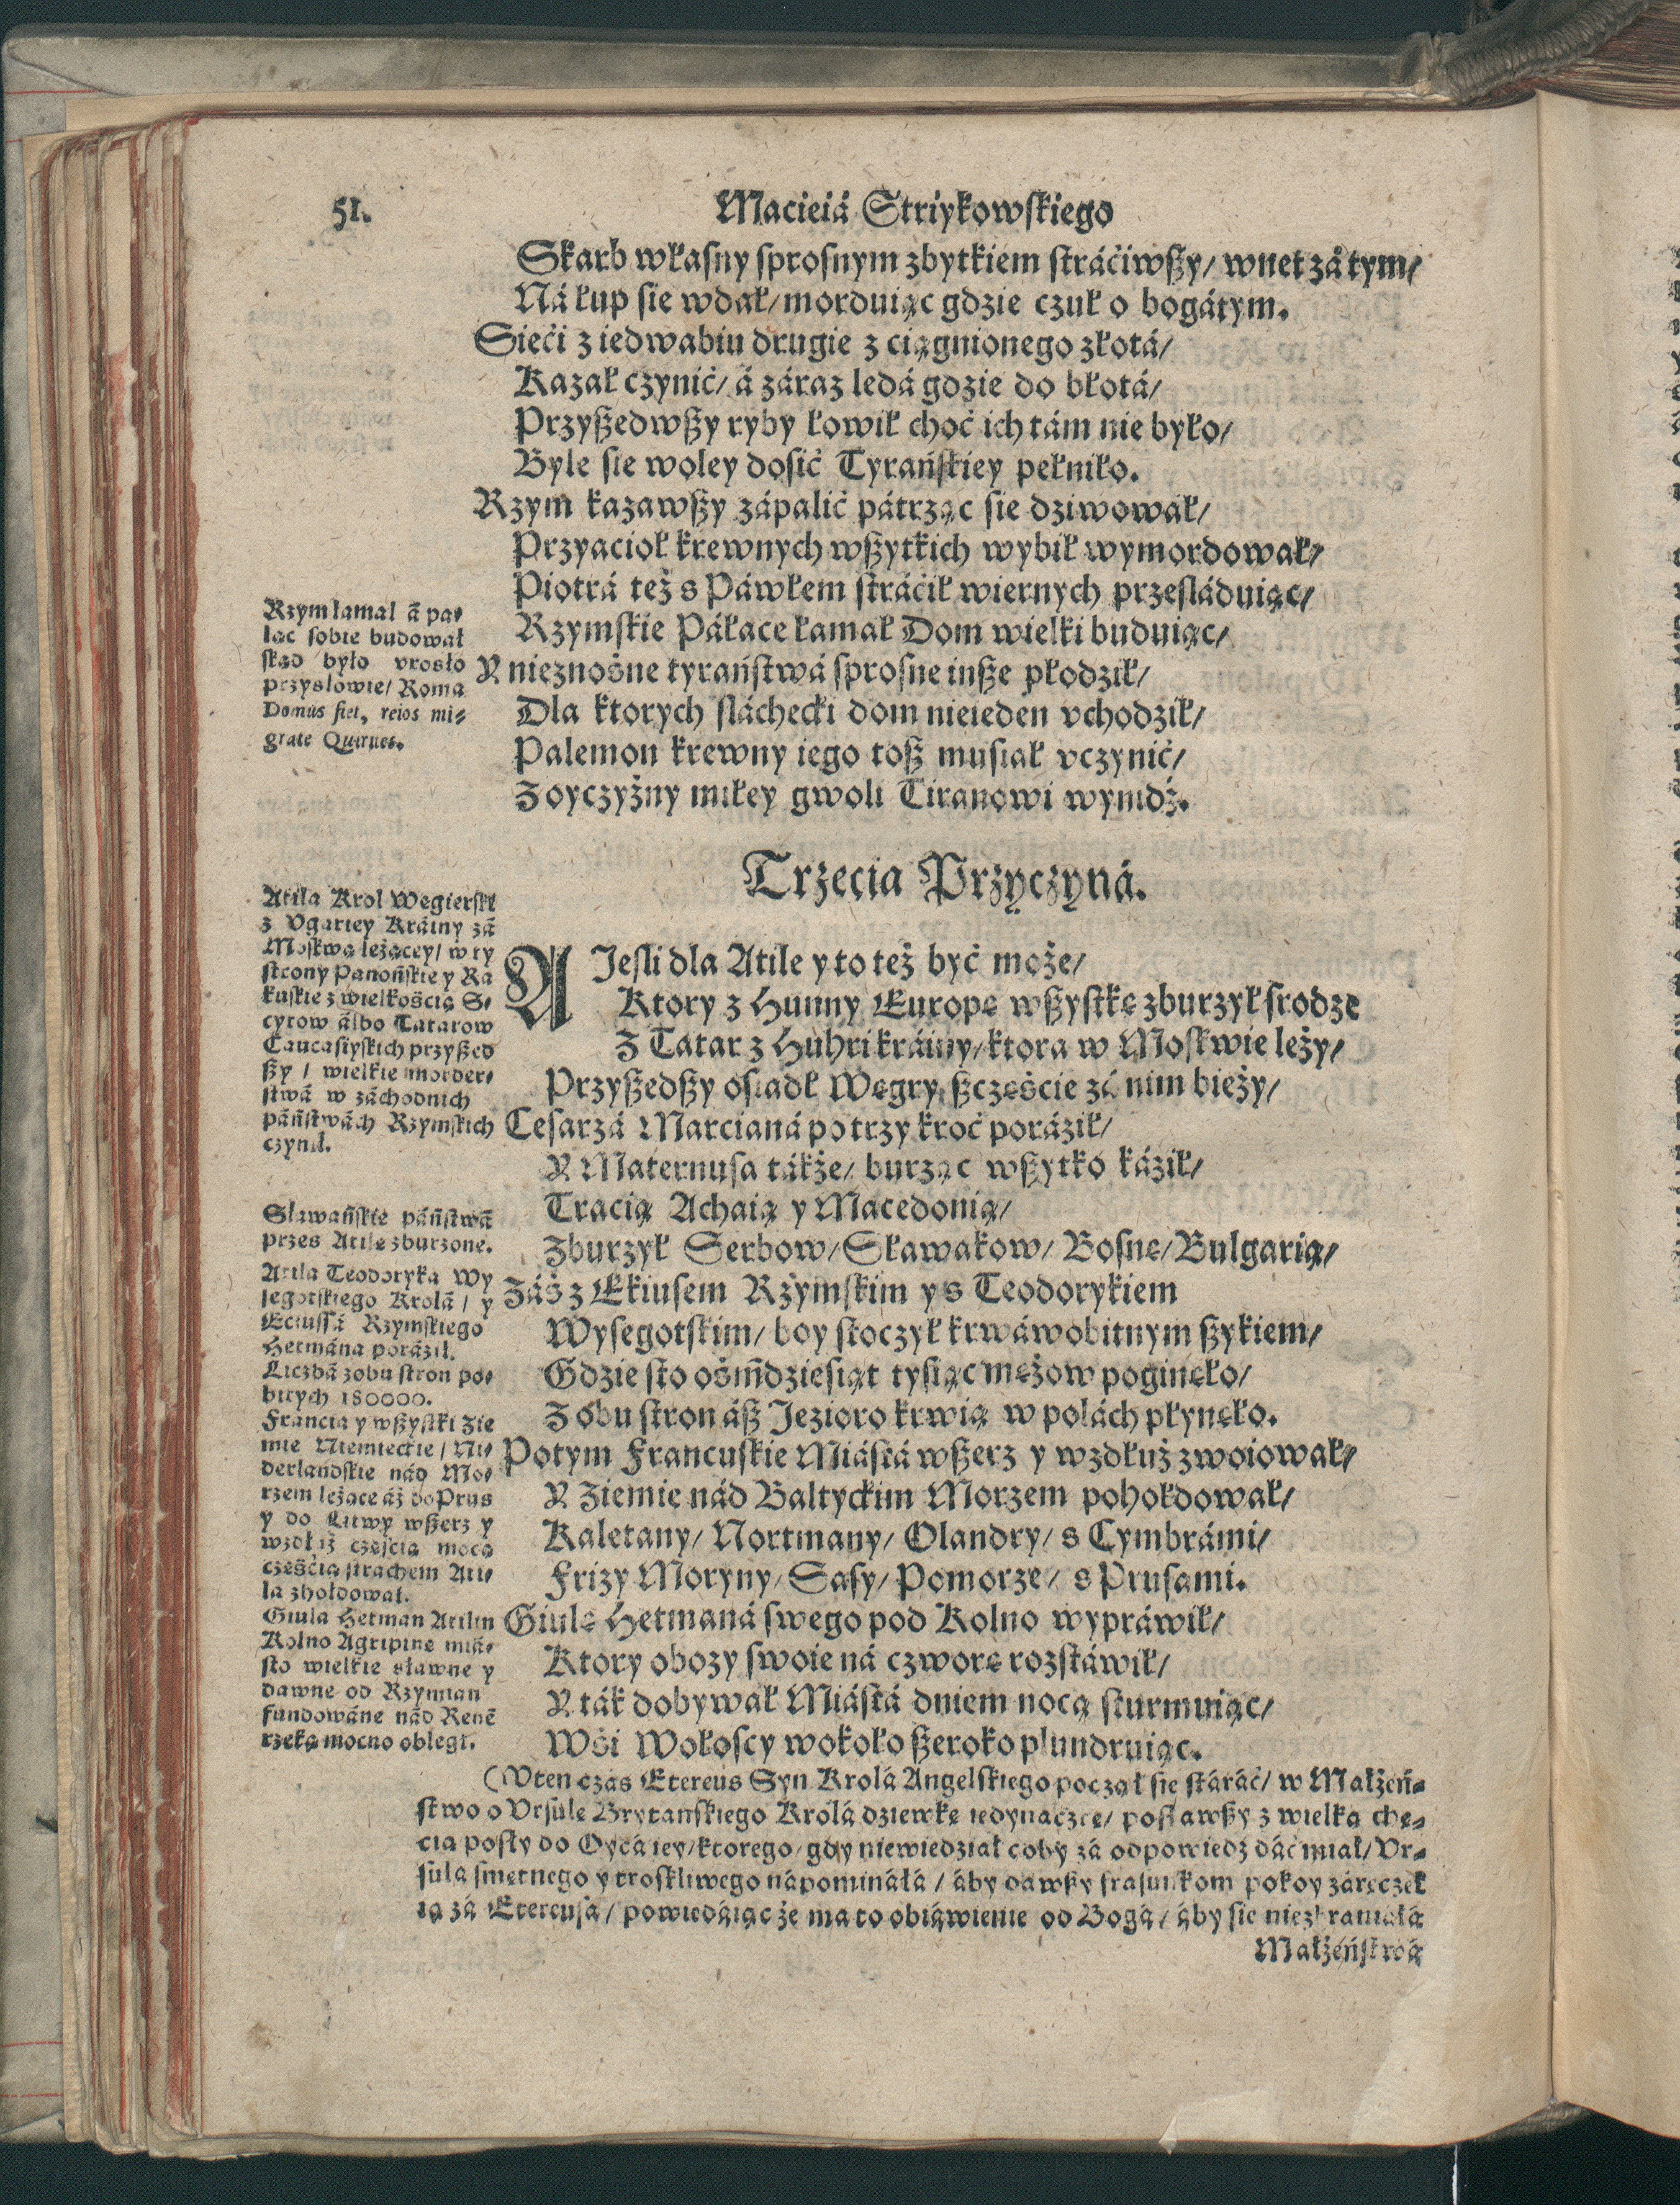 51.
Macieiá Striykowskiego
Skarb własny sprosnym zbytkiem stráćiwßy/ wnet zátym/
Ná łup sie wdał/ morduiąc gdzie czuł o bogátym.
Sieći z iedwabiu drugie z ciągnionego złotá/
Kazał czynić/ á záraz ledá gdzie do błotá/
Przyßedwßy ryby łowił choć ich tám nie było/
Byle sie woley dosić Tyrańskiey pełniło.
Rzym kazawßy zápalić pátrząc sie dziwował/
Przyacioł krewnych wßytkich wybił wymordował/
Piotrá też s Páwłem stráćił wiernych przesláduiąc/
Rzymskie Páłace łamał Dom wielki buduiąc/
Y nieznośne tyráństwá sprosne inße płodził/
Dla ktorych sláchecki dom nieieden vchodził/
Palemon krewny iego toß musiał vczynić/
Z oyczyżny miłey gwoli Tiranowi wynidź.
Rzym łamał á pa⸗
łac sobie budował
skąd było vrosło
przysłowie/ Roma
Domus fiet, reios mi⸗
grate Quirites.
Trzecia Przyczyná.
A Jesli dla Atile y to też być może/
Ktory z Hunny Europę wßystkę zburzył srodze
Z Tatar z Huhri kráiny/ ktora w Moskwie leży/
Przyßedßy osiadł Węgry, ßczęście zá nim bieży/
Cesarzá Marcianá po trzy kroć poráził/
Y Maternusa tákże/ burząc wßytko káził/
Tracią Achaią y Macedonią/
Zburzył Serbow/ Sławakow/ Bosnę/ Bulgarią/
Záś z Ekiusem Rzymskim y s Teodorykiem
Wysegotskim/ boy stoczył krwáwobitnym ßykiem/
Gdzie sto ośmdziesiąt tysiąc mężow poginęło/
Z obu stron áß Jezioro krwią w polách płynęło.
Potym Francuskie Miástá wßerz y wzdłuż zwoiował/
Y Ziemie nád Baltyckim Morzem pohołdował/
Kaletany/ Nortmany/ Olandry/ s Cymbrámi/
Frizy Moryny/ Sasy/ Pomorze/ s Prusami.
Giulę Hetmaná swego pod Kolno wypráwił/
Ktory obozy swoie ná czworę rozstáwił/
Y ták dobywał Miástá dniem nocą sturmuiąc/
Wśi Wołoscy wokoło ßeroko plundruiąc.
Atila Krol Węgierski
z Vgartey Kráiny zá
Moskwą leżącey/ w ty
strony Panońskie y Ra
kuskie z wielkością S⸗
cytow álbo Tatarow
Caucasiyskich przyßed
ßy / wielkie morder⸗
stwá w záchodnich
páństwách Rzymskich
czynił.
Sławáńskie páństwá
przes Atilę zburzone.
Atila Teodoryka Wy
segotskiego Krolá / y
Eciussá Rzymskiego
Hetmána poráził.
Liczbá z obu stron po⸗
bitych 180000.
Francia y wßystki Zie
mie Niemieckie / Ni⸗
derlandskie nád Mo⸗
rzem leżące áż do Prus
y do Litwy wßerz y
wzdłuż częścią mocą
częścią strachem Ati⸗
la zhołdował.
Giula Hetman Atilin
Kolno Agripinę miá⸗
sto wielkie sławne y
dawne od Rzymian
fundowáne nád Renē
rzeką mocno obległ.
(Vten czás Etereus Syn Krolá Angelskiego począł sie stáráć/ w Małżeń⸗
stwo o Vrsulę Brytanskiego Krolá dziewkę iedynaczkę/ posławßy z wielką chę⸗
cią posły do Oycá iey/ ktorego/ gdy niewiedział coby zá odpowiedź dáć miał/ Vr⸗
sula smętnego y troskliwego nápomináłá / áby dawßy frasunkom pokoy záręczył
ią zá Etereusá/ powiedáiąc że ma to obiáwienie od Bogá/ áby sie niezbraniáłá
Małżeństwá